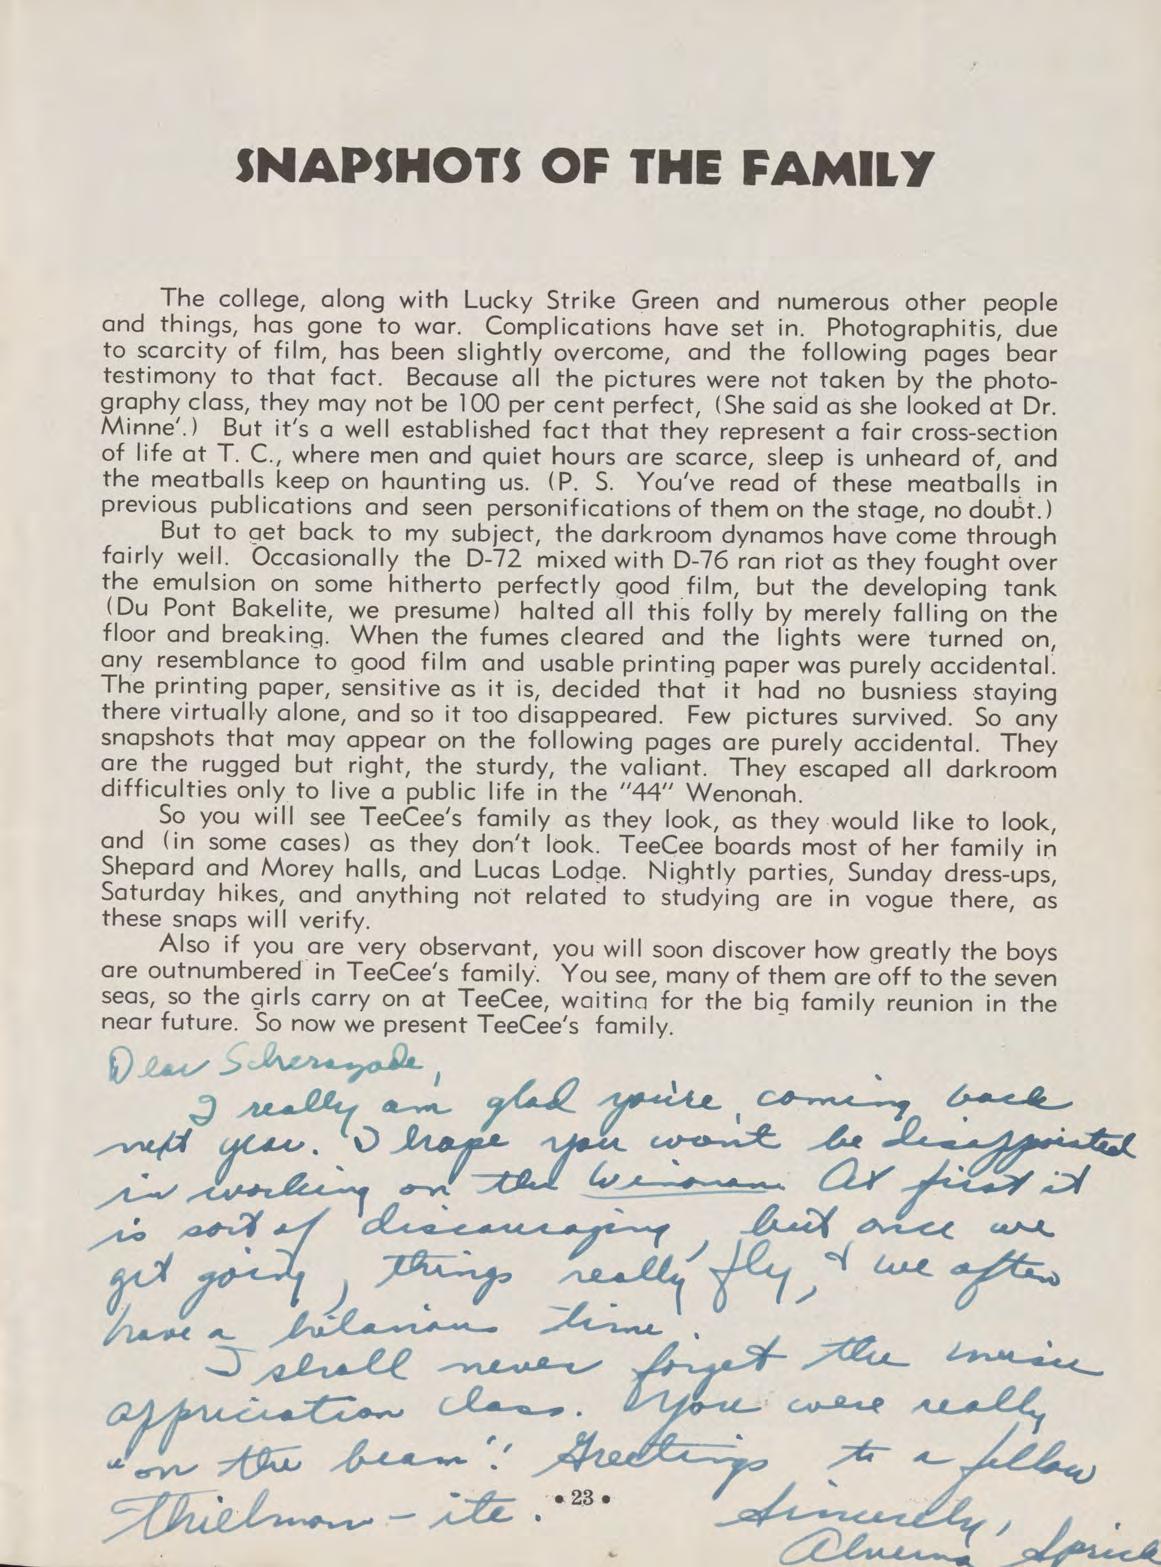 SNAPSHOTS OF THE FAMILY
The college, along with Lucky Strike Green and numerous other people
and things, has gone to war. Complications have set in. Photographitis, due
to scarcity of film, has been slightly overcome, and the following pages bear
testimony to that fact. Because all the pictures were not taken by the photo-
graphy class, they may not be 100 per cent perfect, (She said as she looked at Dr.
Minne'.) But it's a well established fact that they represent a fair cross-section
of life at T. C., where men and quiet hours are scarce, sleep is unheard of, and
the meatballs keep on haunting us. (P. S. You've read of these meatballs in
previous publications and seen personifications of them on the stage, no doubt.)
But to get back to my subject, the darkroom dynamos have come through
fairly well. Occasionally the D-72 mixed with D-76 ran riot as they fought over
the emulsion on some hitherto perfectly good film, but the developing tank
(Du Pont Bakelite, we presume) halted all this folly by merely falling on the
floor and breaking. When the fumes cleared and the lights were turned on,
any resemblance to good film and usable printing paper was purely accidental.
The printing paper, sensitive as it is, decided that it had no busniess staying
there virtually alone, and so it too disappeared. Few pictures survived. So any
snapshots that may appear on the following pages are purely accidental. They
are the rugged but right, the sturdy, the valiant. They escaped all darkroom
difficulties only to live a public life in the "44" Wenonah.
So you will see TeeCee's family as they look, as they would like to look,
and (in some cases) as they don't look. TeeCee boards most of her family in
Shepard and Morey halls, and Lucas Lodge. Nightly parties, Sunday dress-ups,
Saturday hikes, and anything not related to studying are in vogue there, as
these snaps will verify.
Also if you are very observant, you will soon discover how greatly the boys
are outnumbered in TeeCee's family. You see, many of them are off to the seven
seas, so the girls carry on at TeeCee, waiting for the big family reunion in the
near future. So now we present TeeCee's family.
Dear Scherazade,
I really am glad you're coming back
next year. I hope you won't be disappointed
in working on the Winonan. At first it
is sort of discouraging, but once we
get going, things really fly, & we often
have a hilarious time.
I shall never forget the music
appriciation class. You were really
"on the beam"! Greetings to a fellow
Thielman-ite.
• 23 •
Sincerely,
Alverna Sprick